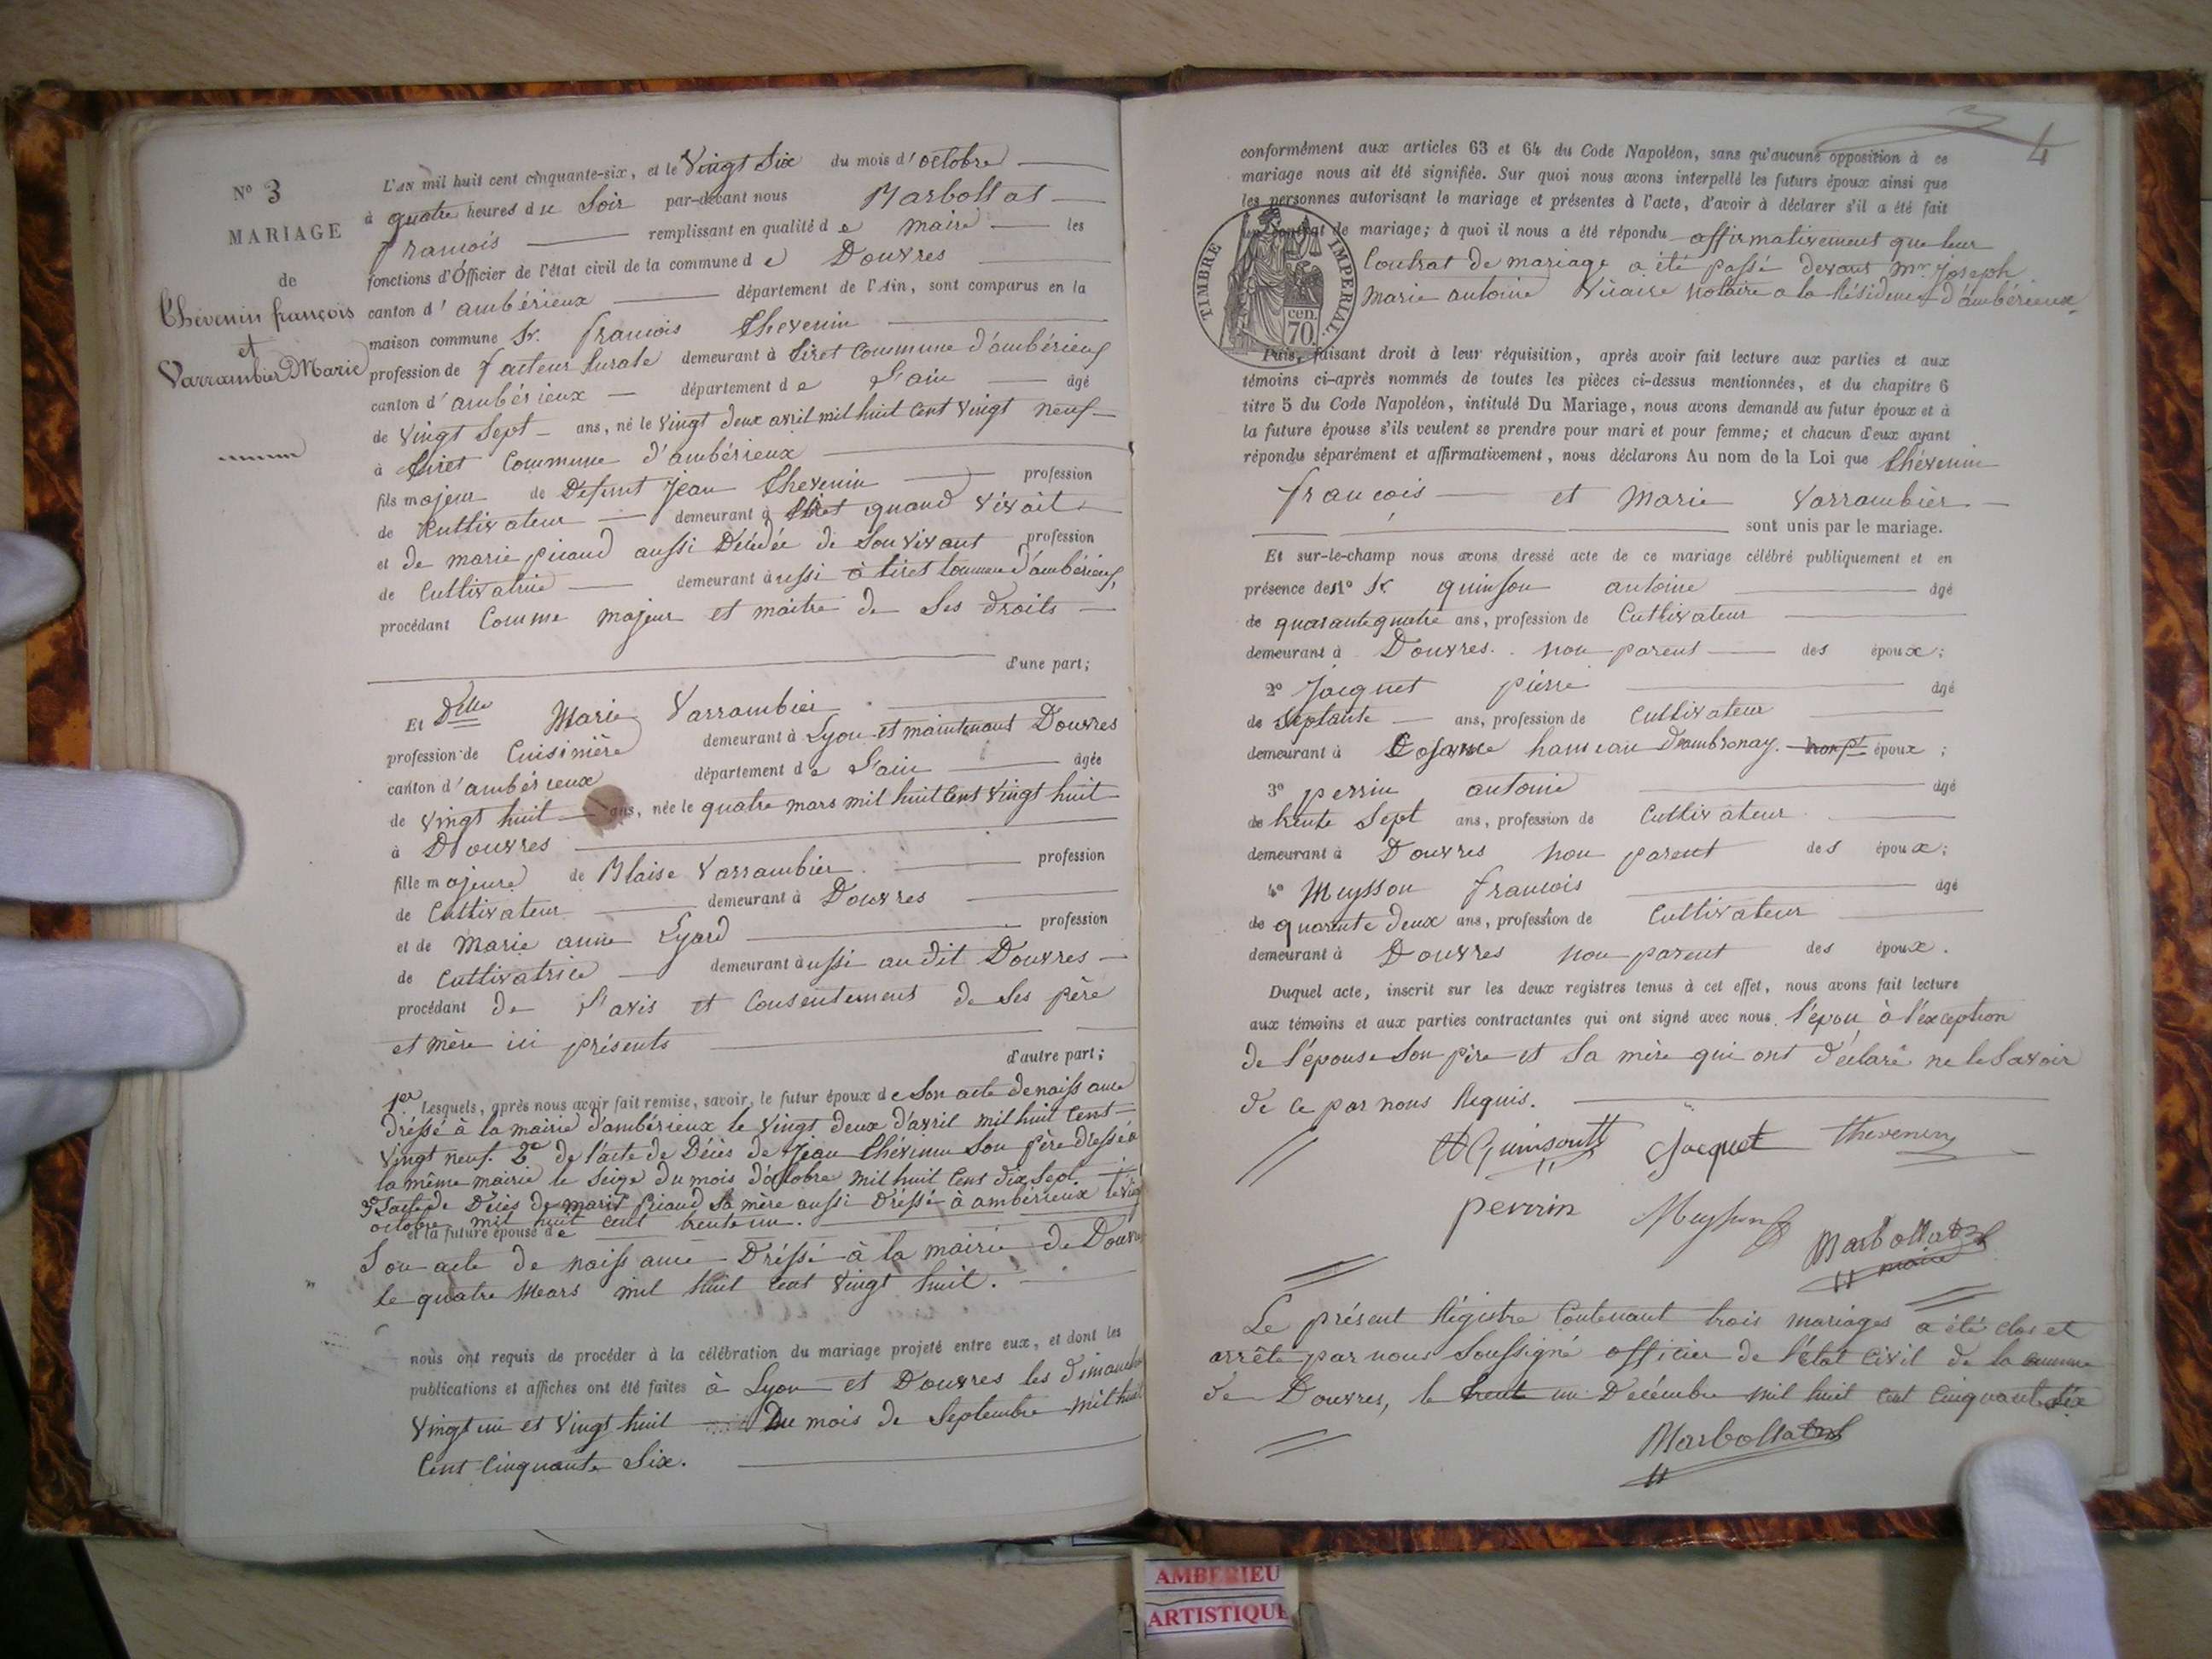 N° 3
MARIAGE
de
Thévenin françois
et
Varrambier Marie
L'AN mil huit cent cinquante-six, et le Vingt Six du mois d'octobre
à quatre heures du Soir par-devant nous Marbollat
françois remplissant en qualité de maire les
fonctions d'Officier de l'état civil de la commune de Douvres
canton d'ambérieux département de l'Ain, sont comparus en la
maison commune Sr. francois Thevenin
profession de facteur Rurale demeurant à Tiret Commune d'ambérieux
canton d'ambérieux département de l'ain âgé
de Vingt Sept ans, né le Vingt deux avril mil huit Cent Vingt neuf
à Tiret Commune d'ambérieux
fils majeur de Defunt Jean Thevenin profession
de Cultivateur demeurant à Tiret quand Vivait
et de marie picaud aussi Décédée de Son Vivant profession
de Cultivatrice demeurant aussi à tiret Commune d'ambérieux,
procédant Comme majeur et maitre de Ses droits
d'une part;
Et Dlle Marie Varrambier
profession de Cuisinière demeurant à Lyon et maintenant Douvres
canton d'ambérieux département de l'ain âgée
de Vingt huit ans, née le quatre mars mil huit Cent Vingt huit
à Douvres
fille majeure de Blaise Varrambier profession
de Cultivateur demeurant à Douvres
et de Marie anne Lyard profession
de Cultivatrice demeurant aussi au dit Douvres
procédant de l'avis et Consentement de Ses père
et mère ici présents
d'autre part;
1er Lesquels, après nous avoir fait remise, savoir, le futur époux de Son acte de naissance
dréssé à la mairie d'ambérieux le Vingt deux d'avril mil huit Cent
Vingt neuf. 2e de l'acte de Décès de Jean Thévenin Son père dressé à
la même mairie le Seize du mois d'octobre mil huit Cent dix Sept.
3e l'acte de Décès de marie picaud Sa mère aussi Dréssé à ambérieux le
octobre mil huit cent trente un.
et la future épouse de
Son acte de naissance Dréssé à la mairie de Douvres
le quatre Mars mil huit Cent Vingt huit.
nous ont requis de procéder à la célébration du mariage projeté entre eux, et dont les
publications et affiches ont été faites à Lyon et Douvres les dimanches
Vingt un et Vingt huit Du mois de Septembre mil huit
Cent Cinquante Six.
3
4
conformément aux articles 63 et 64 du Code Napoléon, sans qu'aucune opposition à ce
mariage nous ait été signifiée. Sur quoi nous avons interpellé les futurs époux ainsi que
les personnes autorisant le mariage et présentes à l'acte, d'avoir à déclarer s'il a été fait
un contrat de mariage; à quoi il nous a été répondu affirmativement que leur
Contrat de mariage a été passé devant Mr Joseph
Marie antoine notaire a la Résidence d'ambérieux
TIMBRE IMPÉRIAL.
cen.
70.
Puis, faisant droit à leur réquisition, après avoir fait lecture aux parties et aux
témoins ci-après nommés de toutes les pièces ci-dessus mentionnées, et du chapitre 6
titre 5 du Code Napoléon, intitulé Du Mariage, nous avons demandé au futur époux et à
la future épouse s'ils veulent se prendre pour mari et pour femme; et chacun d'eux ayant
répondu séparément et affirmativement, nous déclarons Au nom de la Loi que Thévenin
françois et Marie Varrambier
sont unis par le mariage.
Et sur-le-champ nous avons dressé acte de ce mariage célébré publiquement et en
présence de 1° Sr. quinson antoine âgé
de quarante quatre ans, profession de Cultivateur
demeurant à Douvres. non parent des époux;
2° Jacquet pierre âgé
de Septante ans, profession de Cultivateur
demeurant à hameau d'ambronay. non pt époux;
3° perrin antoine âgé
de trente Sept ans, profession de Cultivateur
demeurant à Douvres non parent des époux;
4° Meysson francois âgé
de quarante deux ans, profession de Cultivateur
demeurant à Douvres non parent des époux.
Duquel acte, inscrit sur les deux registres tenus à cet effet, nous avons fait lecture
aux témoins et aux parties contractantes qui ont signé avec nous. l'épou à l'exception
de l'épouse Son père et Sa mère qui ont déclaré ne le Savoir
de ce par nous Requis.
Quinson Jacquet thevenin
perrin Meysson Marbollat
maire
Le présent Régistre Contenant trois mariages a été clos et
arrête par nous Soussigné officier de l'état Civil de la commune
de Douvres, le trente un Decembre mil huit cent Cinquante Six
Marbollat
AMBERIEU
ARTISTIQUE